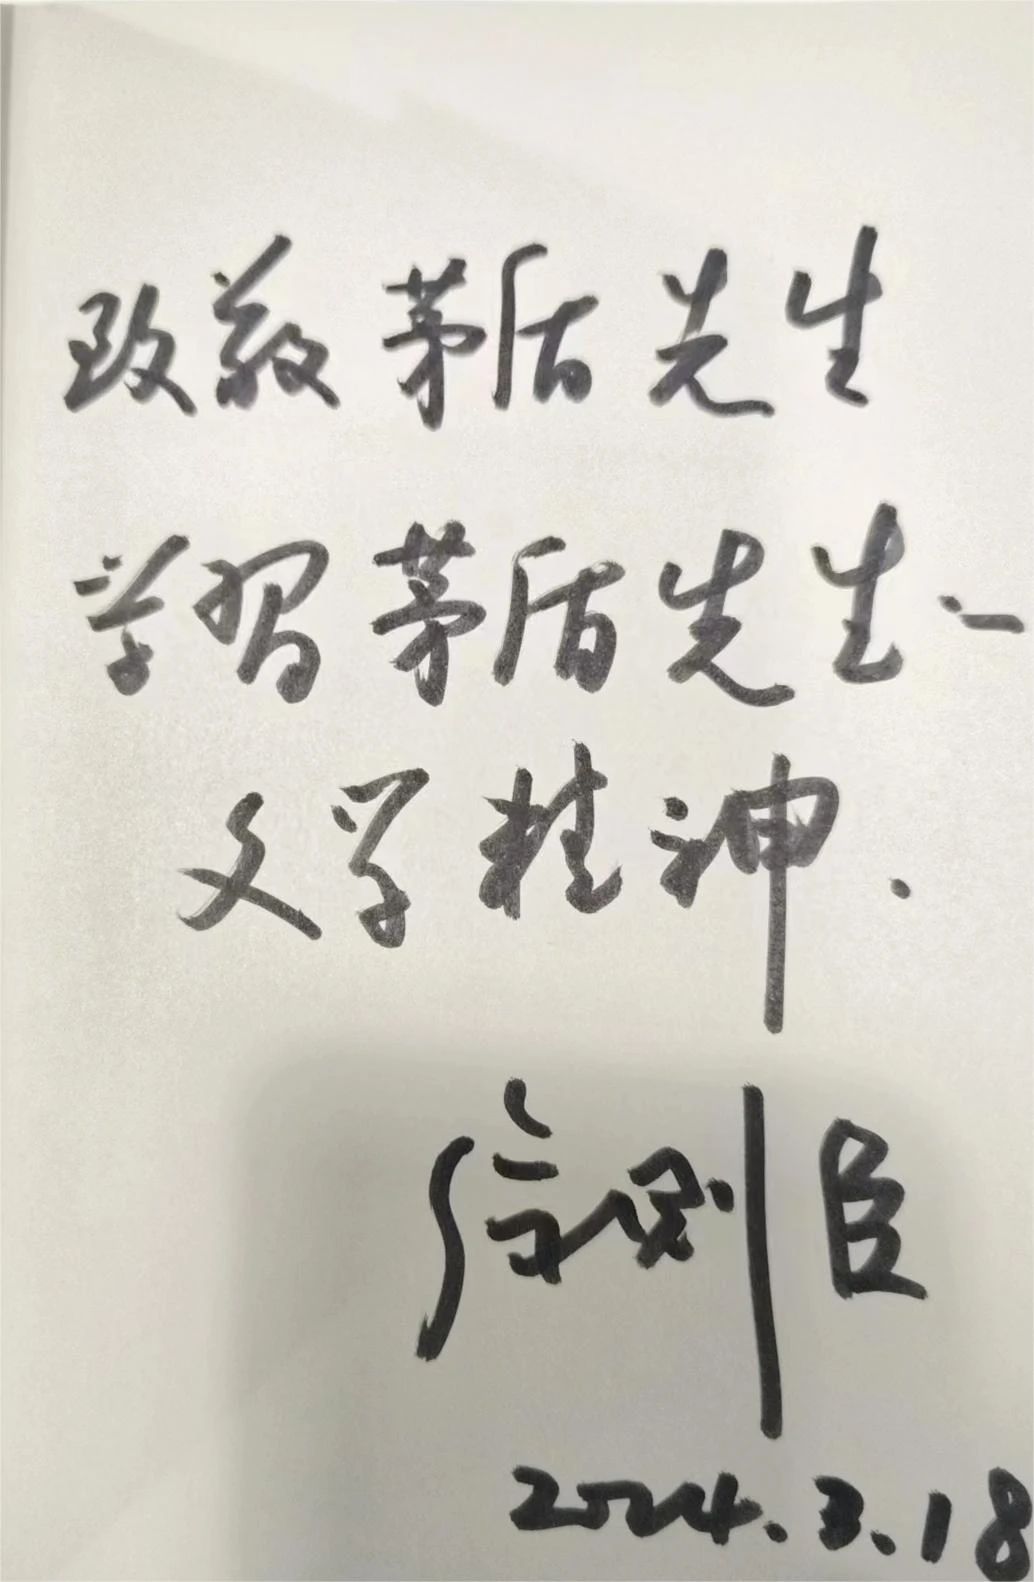 致敬茅盾先生
学习茅盾先生
文学精神.
2024.3.18